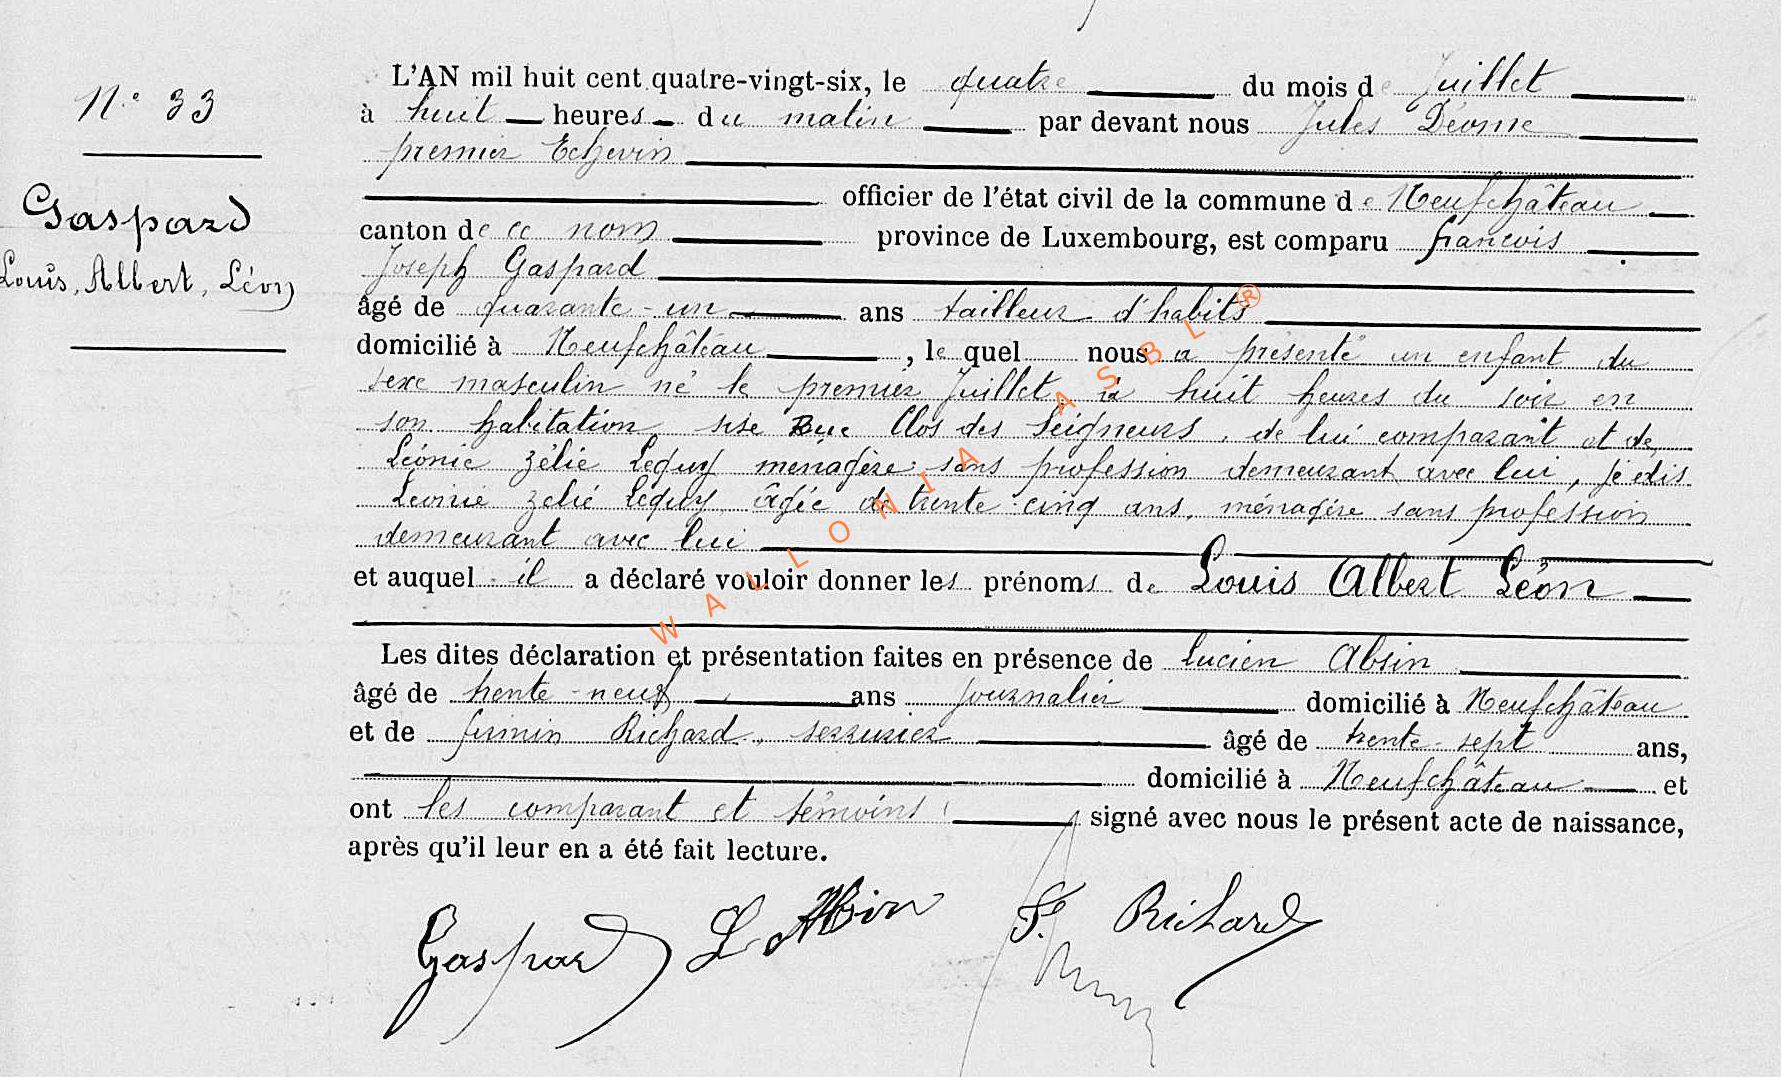 N.° 33
Gaspard
Louis, Albert, Léon
L'AN mil huit cent quatre-vingt-six, le quatre du mois de Juillet
à huit heures du matin par devant nous Jules Déome
premier Echevin
officier de l'état civil de la commune de Neufchâteau
canton de ce nom province de Luxembourg, est comparu francois
Joseph Gaspard
âgé de quarante-un ans tailleur d'habits
domicilié à Neufchâteau, le quel nous a présenté un enfant du
sexe masculin né le premier Juillet à huit heures du soir en
son habitation sise Rue Clos des Seigneurs, de lui comparant et de
Léonie zélie Lequy menagère sans profession demeurant avec lui, je dis
Léonie zelié Lequy, âgée de trente cinq ans, ménagère sans profession
demeurant avec lui
et auquel il a déclaré vouloir donner les prénoms de Louis Albert Léon
Les dites déclaration et présentation faites en présence de lucien Absin
âgé de trente-neuf ans journalier domicilié à Neufchâteau
et de firmin Richard, serrurier âgé de trente-sept ans,
domicilié à Neufchâteau et
ont les comparant et témoins signé avec nous le présent acte de naissance,
après qu'il leur en a été fait lecture.
Gaspard L Absin F. Richard
WALLONIA ASBL ®